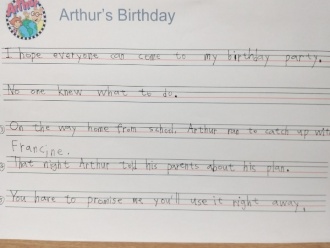 Arthur's Birthday
I hope everyone can come to my birthday party.
No one knew what to do.
On the way home from school, Arthur ran to catch up with
Francine.
That night Arthur told his parents about his plan.
You have to promise me you'll use it right away.